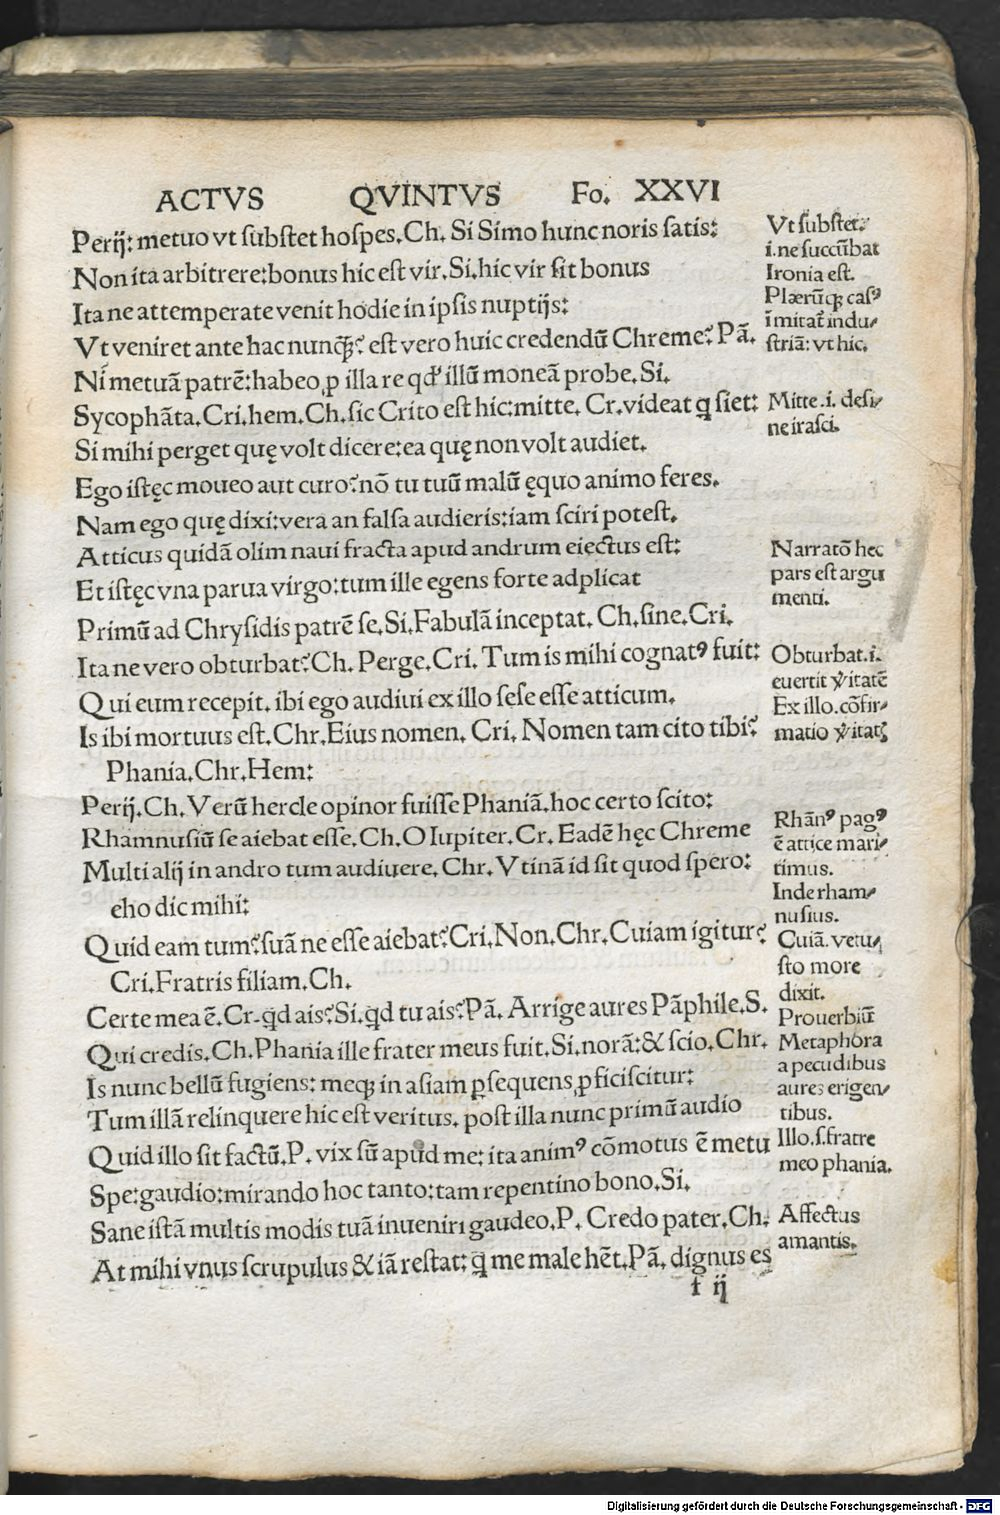 ACTVS QVINTVS Fo. XXVI
Perij: metuo vt ſubſtet hoſpes. Ch. Si Simo hunc noris ſatis:
Non ita arbitrere: bonus hic eſt vir. Si. hic vir ſit bonus
Ita ne attemperate venit hodie in ipſis nuptijs:
Vt veniret ante hac nunqꝫ? eſt vero huic credendū Chreme? Pā.
Ni metuā patrē: habeo ꝓ illa re qđ illū moneā probe. Si.
Sycophāta. Cri. hem. Ch. ſic Crito eſt hic: mitte. Cr. videat q̄ ſiet:
Si mihi perget quę volt dicere: ea quę non volt audiet.
Ego iſtęc moueo aut curo? nō tu tuū malū ęquo animo feres.
Nam ego quę dixi: vera an falſa audieris: iam ſciri poteſt.
Atticus quidā olim naui fracta apud andrum eiectus eſt:
Et iſtęc vna parua virgo: tum ille egens forte adplicat
Primū ad Chryſidis patrē ſe. Si. Fabulā inceptat. Ch. ſine. Cri.
Ita ne vero obturbat? Ch. Perge. Cri. Tum is mihi cognatꝰ fuit:
Qui eum recepit. ibi ego audiui ex illo ſeſe eſſe atticum.
Is ibi mortuus eſt. Chr. Eius nomen. Cri. Nomen tam cito tibi?
Phania. Chr. Hem:
Perij. Ch. Verū hercle opinor fuiſſe Phaniā. hoc certo ſcito:
Rhamnuſiū ſe aiebat eſſe. Ch. O Iupiter. Cr. Eadē hęc Chreme
Multi alij in andro tum audiuere. Chr. Vtinā id ſit quod ſpero:
eho dic mihi:
Quid eam tum? ſuā ne eſſe aiebat? Cri. Non. Chr. Cuiam igitur?
Cri. Fratris filiam. Ch.
Certe mea ē. Cr. qd ais? Si. qd tu ais? Pā. Arrige aures Pāphile. S.
Qui credis. Ch. Phania ille frater meus fuit. Si. norā: & ſcio. Chr.
Is nunc bellū fugiens: meqꝫ in aſiam ꝑſequens ꝓficiſcitur:
Tum illā relinquere hic eſt veritus. poſt illa nunc primū audio
Quid illo ſit factū. P. vix ſū apud me: ita animꝰ cōmotus ē metu
Spe: gaudio: mirando hoc tanto: tam repentino bono. Si.
Sane iſtā multis modis tuā inueniri gaudeo. P. Credo pater. Ch.
At mihi vnus ſcrupulus & iā reſtat: q̄ me male hēt. Pā. dignus es
t ij
Vt ſubſtet.
i. ne ſuccūbat
Ironia eſt.
Plærūqꝫ caſꝰ
īmitat̄ indu-
ſtriā: vt hic.
Mitte .i. deſi-
ne iraſci.
Narratō hec
pars eſt argu
menti.
Obturbat .i.
euertit v̓itatē
Ex illo. cōfir-
matio v̓itatꝭ
Rhānꝰ pagꝰ
ē attice mari-
timus.
Inde rham-
nuſius.
Cuiā. vetu-
ſto more
dixit.
Prouerbiū
Metaphora
a pecudibus
aures erigen-
tibus.
Illo .ſ. fratre
meo phania.
Affectus
amantis.
Digitalisierung gefördert durch die Deutsche Forschungsgemeinschaft - DFG